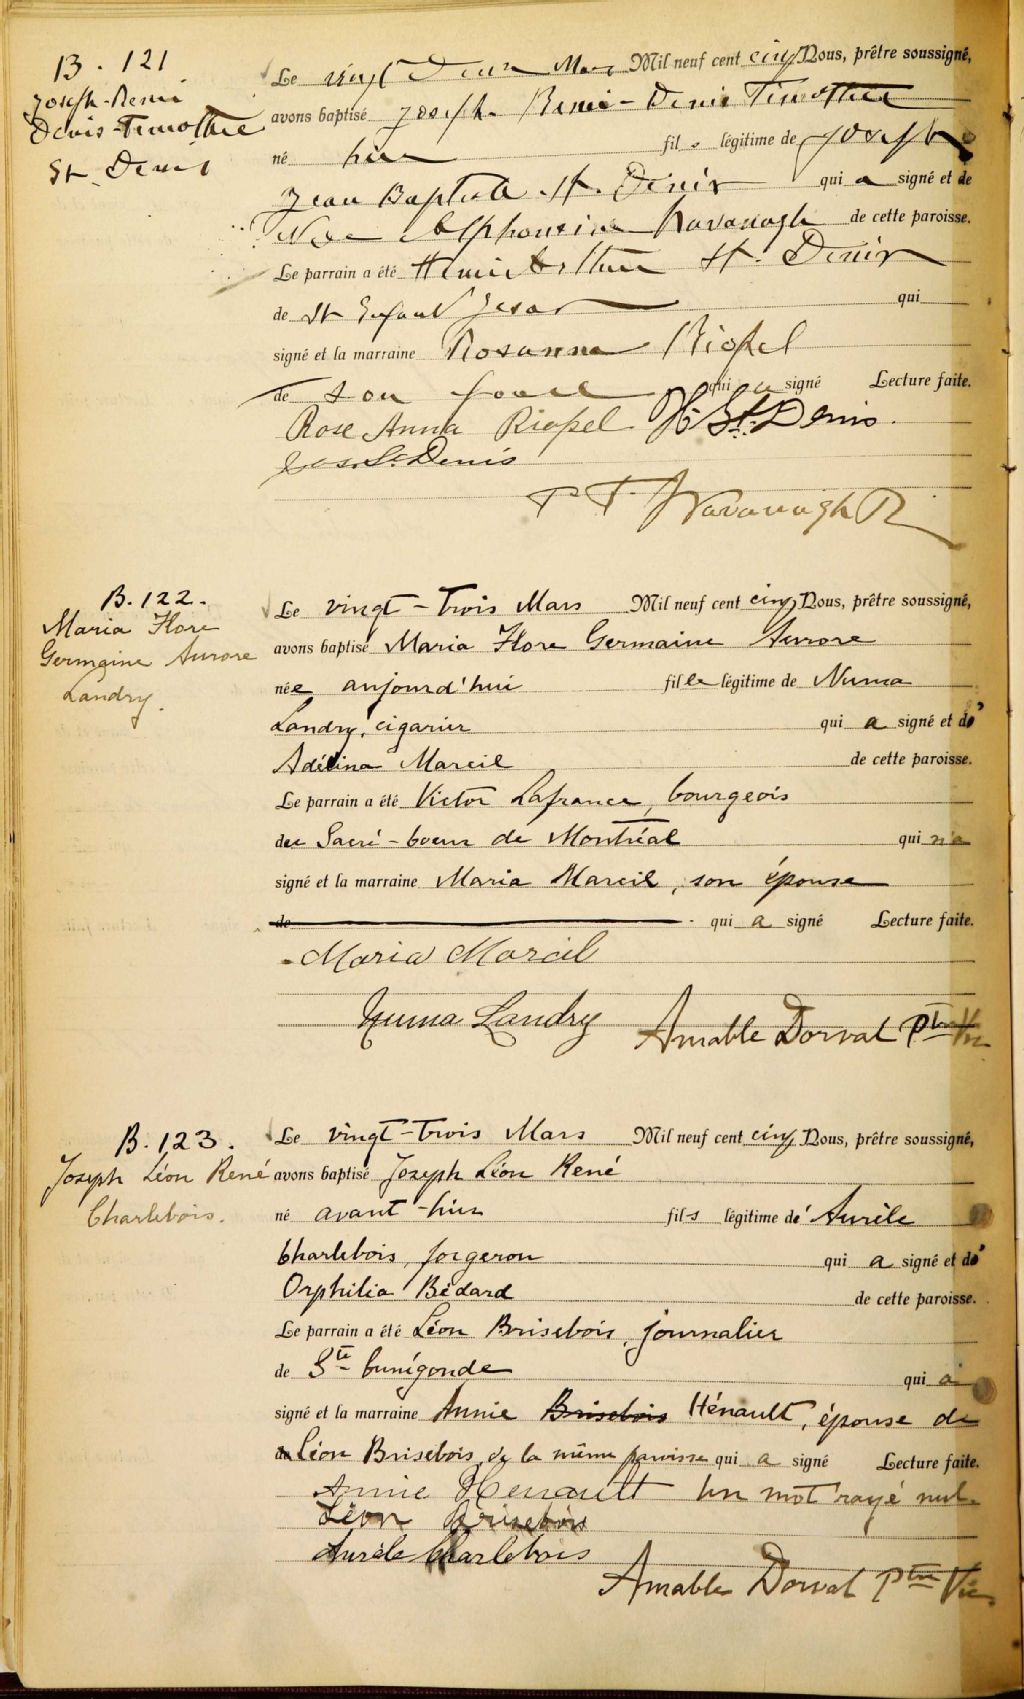 B. 121
Joseph-Remi
Denis-Timothée
St. Denis
Le vingt Deux Mars Mil neuf cent cinq Nous, prêtre soussigné,
avons baptisé Joseph Remi-Denis Timothée
né hier fils légitime de Joseph
Jean Baptiste St. Denis qui a signé et de
Alphonsine Kavanagh de cette paroisse.
Le parrain a été Henri Arthur St. Denis
de St Enfant Jesus qui
signé et la marraine Rosanna Riopel
de son qui a signé Lecture faite.
Rose Anna Riopel H. St. Denis.
Jos. St Denis
Kavanagh
B. 122.
Maria Flore
Germaine Aurore
Landry.
Le vingt-trois Mars Mil neuf cent cinq Nous, prêtre soussigné,
avons baptisé Maria Flore Germaine Aurore
née aujourd'hui fille légitime de Numa
Landry, cigarier qui a signé et d'
Adélina Marcil de cette paroisse.
Le parrain a été Victor Lafrance, bourgeois
du Sacré-Coeur de Montréal qui n'a
signé et la marraine Maria Marcil, son épouse
de qui a signé Lecture faite.
Maria Marcil
Numa Landry Amable Dorval Ptre Vic
B. 123.
Joseph Léon René
Charlebois.
Le vingt-trois Mars Mil neuf cent cinq Nous, prêtre soussigné,
avons baptisé Joseph Léon René
né avant-hier fils légitime d'Aurèle
Charlebois, forgeron qui a signé et d'
Orphilia Bédard de cette paroisse.
Le parrain a été Léon Brisebois, journalier
de Ste Cunégonde qui a
signé et la marraine Annie Brisebois Hénault, épouse de
Léon Brisebois, de la même paroisse qui a signé Lecture faite.
Annie Henault Un mot rayé nul.
Léon Brisebois
Aurèle Charlebois
Amable Dorval Ptre Vic.